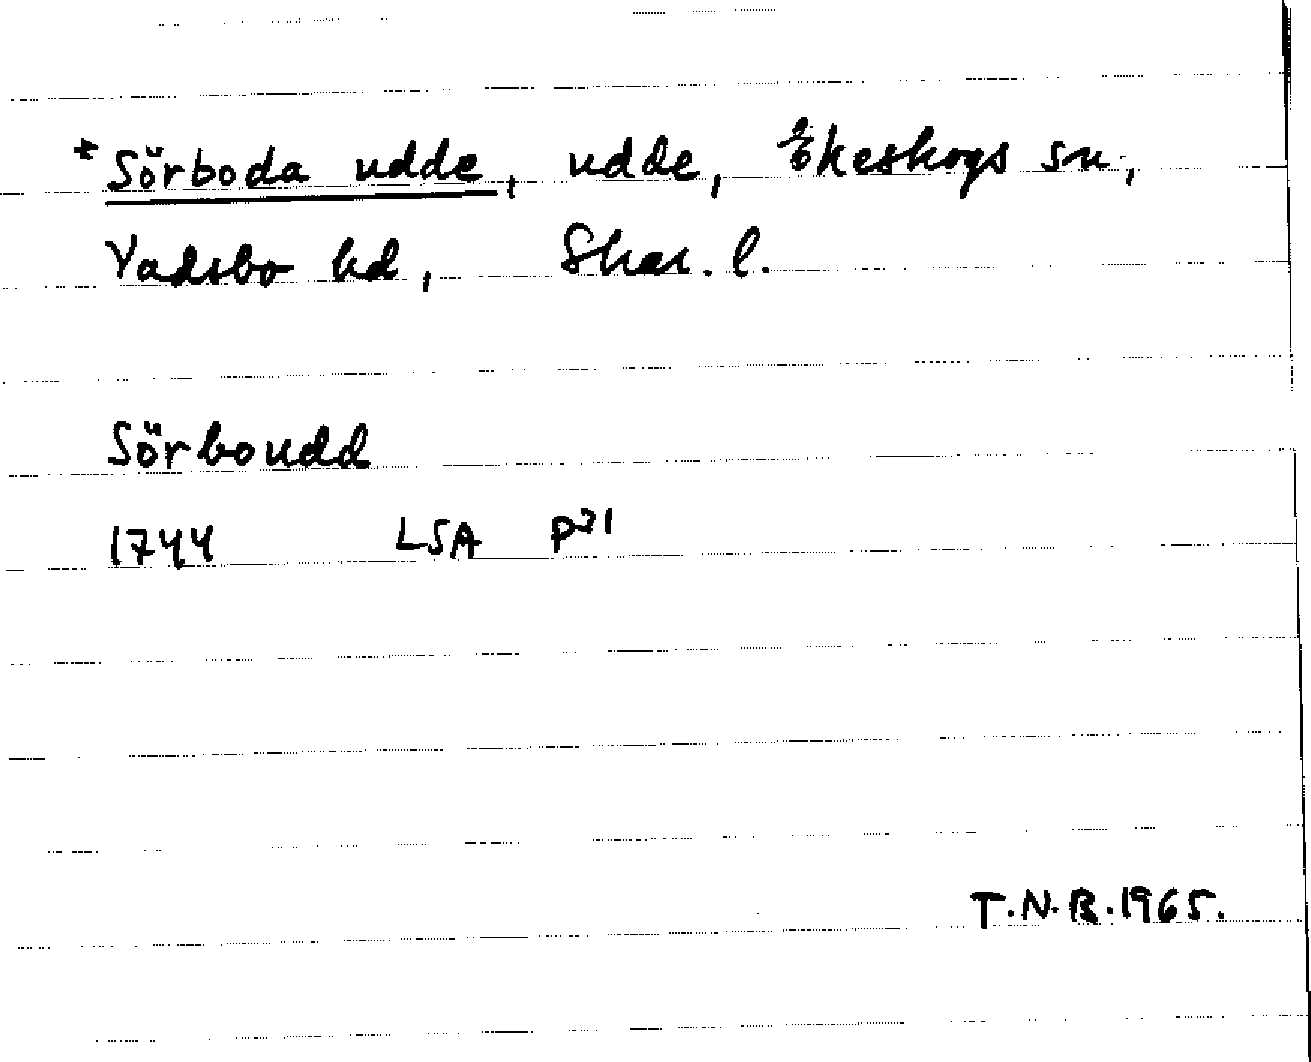 * Sörboda udde, udde, Ökeskogs sn,
Vadsbo hd, Skar. l.
Sörboudd
1744 LSA P31
T.N.R.1965.